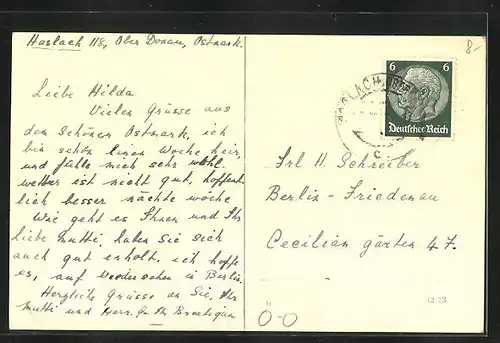 Haslach 118, Ober Donau, Ostmark.
Liebe Hilda
Vielen Grüsse aus
den Schönen Ostmark, ich
bin schön einen Woche heir,
und fühle mich sehr wohl.
wetter ist nicht gut, hoffent
lich besser nächte wöche
Wie geht es Ihnen und Ihr
Liebe Mutti, haben Sie sich
auch gut erholt. ich hoffe
es, auf Wiedersehen in Berlin.
Herzliche Grüsse an Sie, Ihr
Mutti und Herr.
6 6
Deutsches Reich
Frl H. Schreiber
Berlin-Friedenau
Cecilian gärten 47.
8-
12-13
0-0